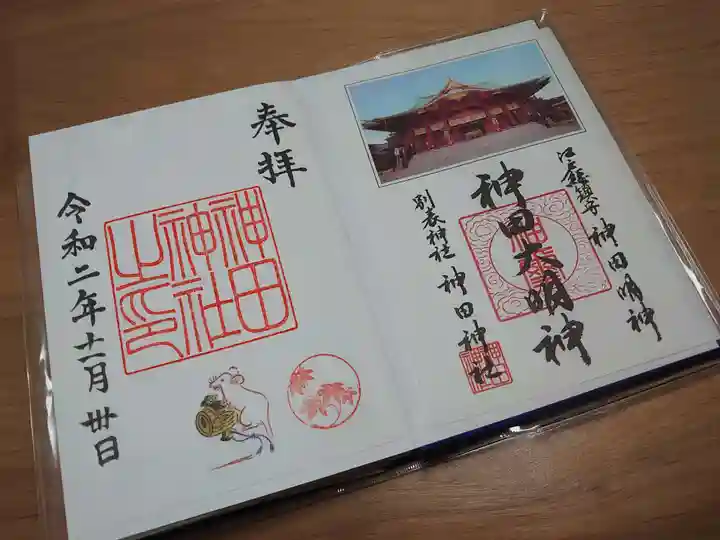 江戸総鎮守 神田明神
神田大明神
別表神社 神田神社
奉拝
神田
神社
之印
令和二年十一月卅日